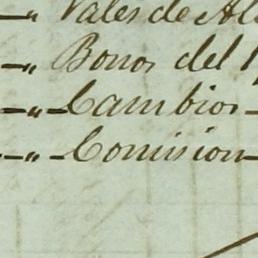 —„ Vales de Al
—„ Bonos del
—„—Cambios—
—„—Comision—